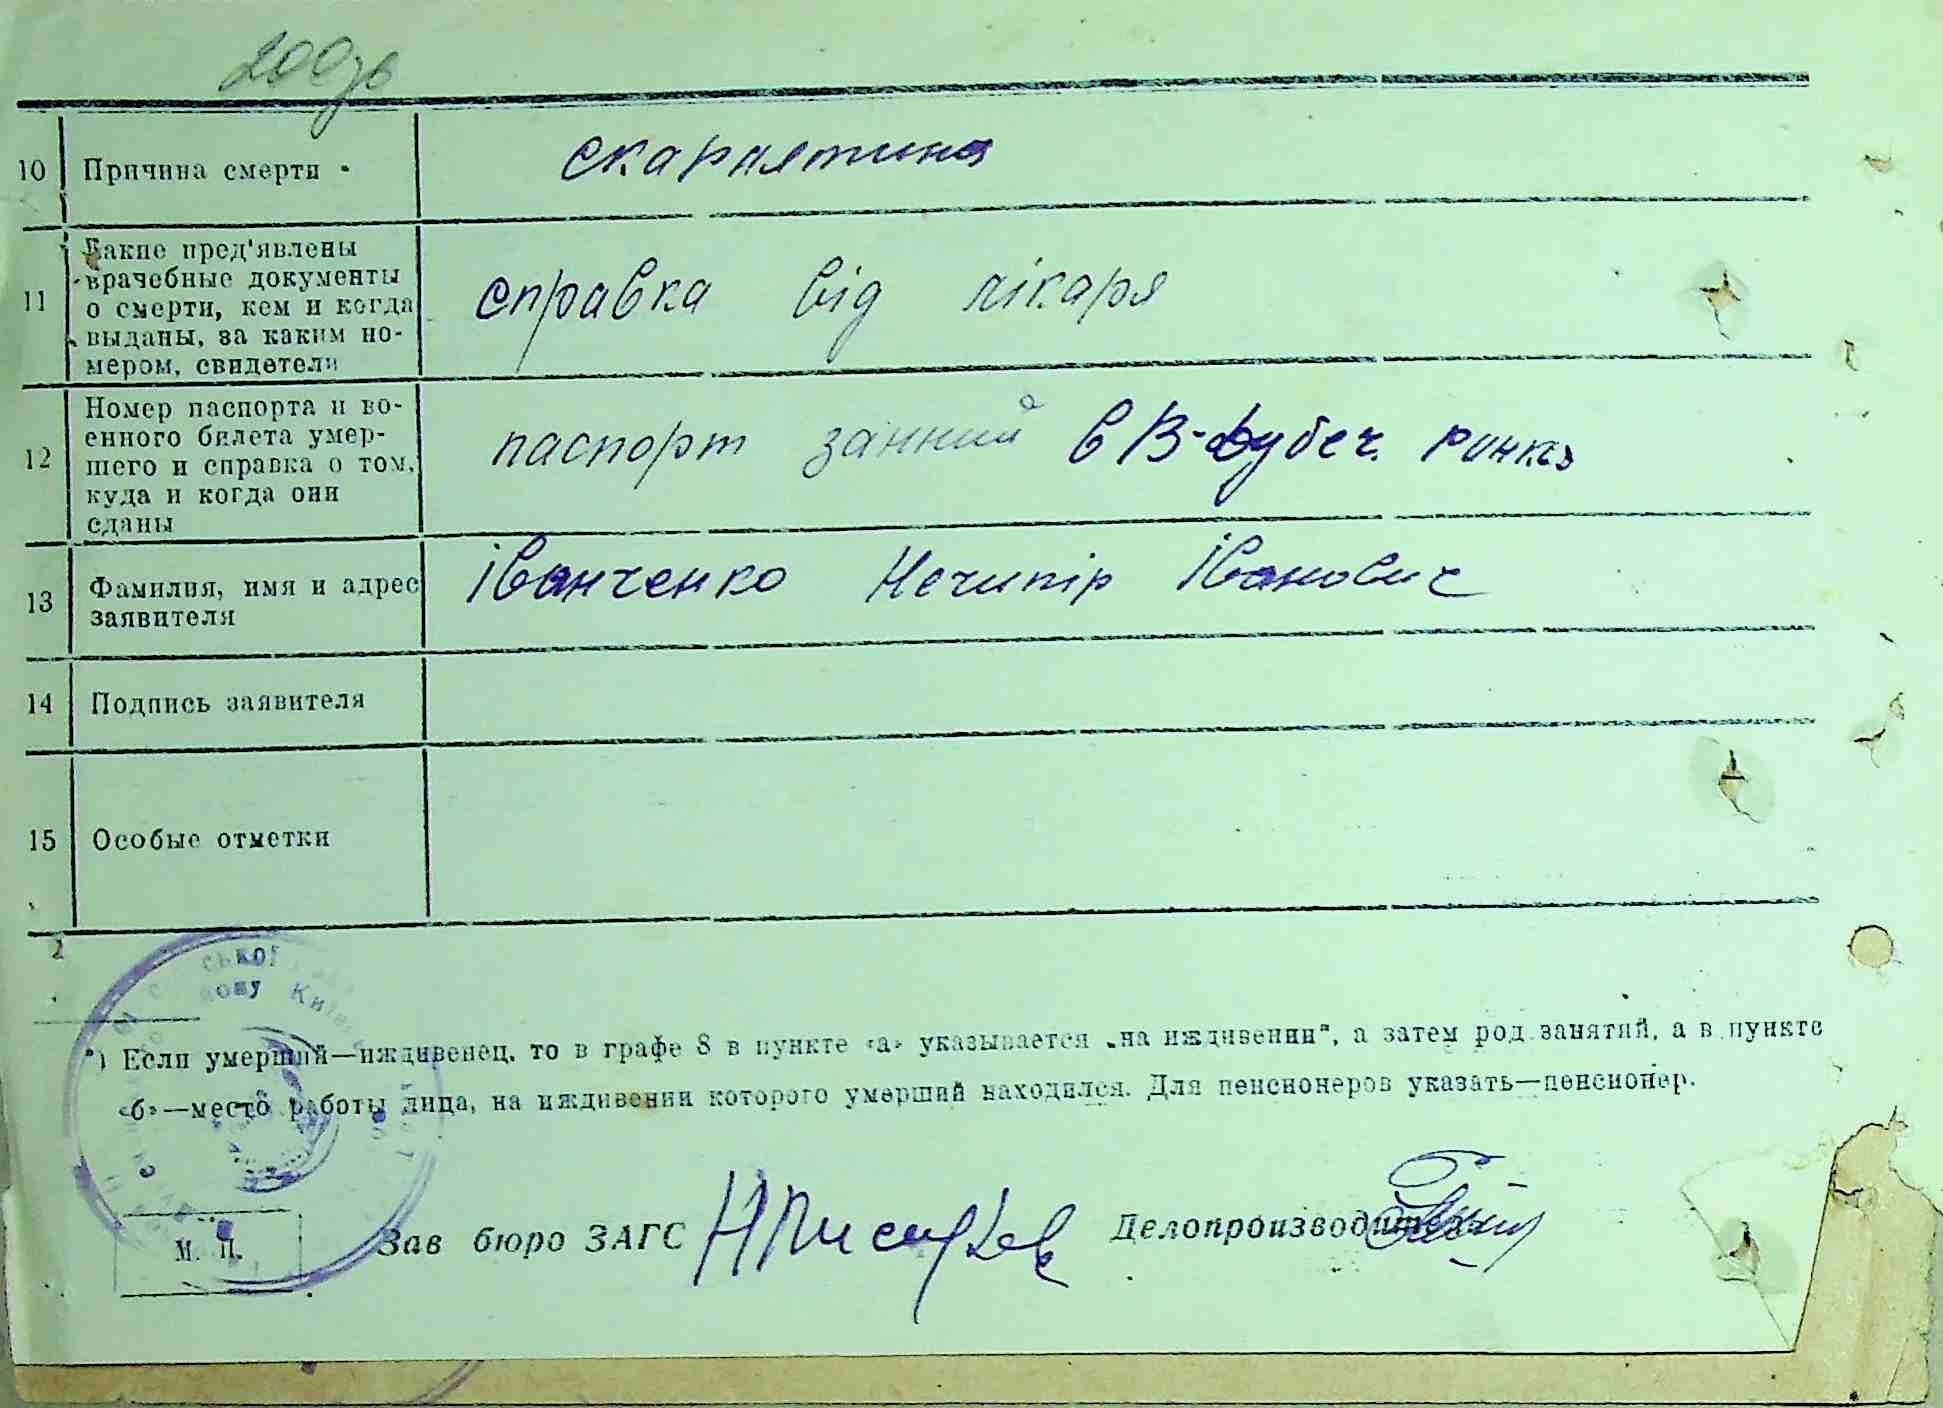 200зв
10 Причина смерти - скарлятина
11 Какие пред'явлены
врачебные документы
о смерти, кем и когда
выданы, за каким но-
мером, свидетели
справка від лікаря
12 Номер паспорта и во-
енного билета умер-
шего и справка о том,
куда и когда они
сданы
паспорт
13 Фамилия, имя и адрес
заявителя
Іванченко Нечипір Іванович
14 Подпись заявителя
15 Особые отметки
*) Если умерший—иждивенец, то в графе 8 в пункте «а» указывается „на иждивении", а затем род занятий, а в пункте
«б»—место работы лица, на иждивении которого умерший находился. Для пенсионеров указать—пенсионер.
М. П.
Зав бюро ЗАГС
Делопроизводитель